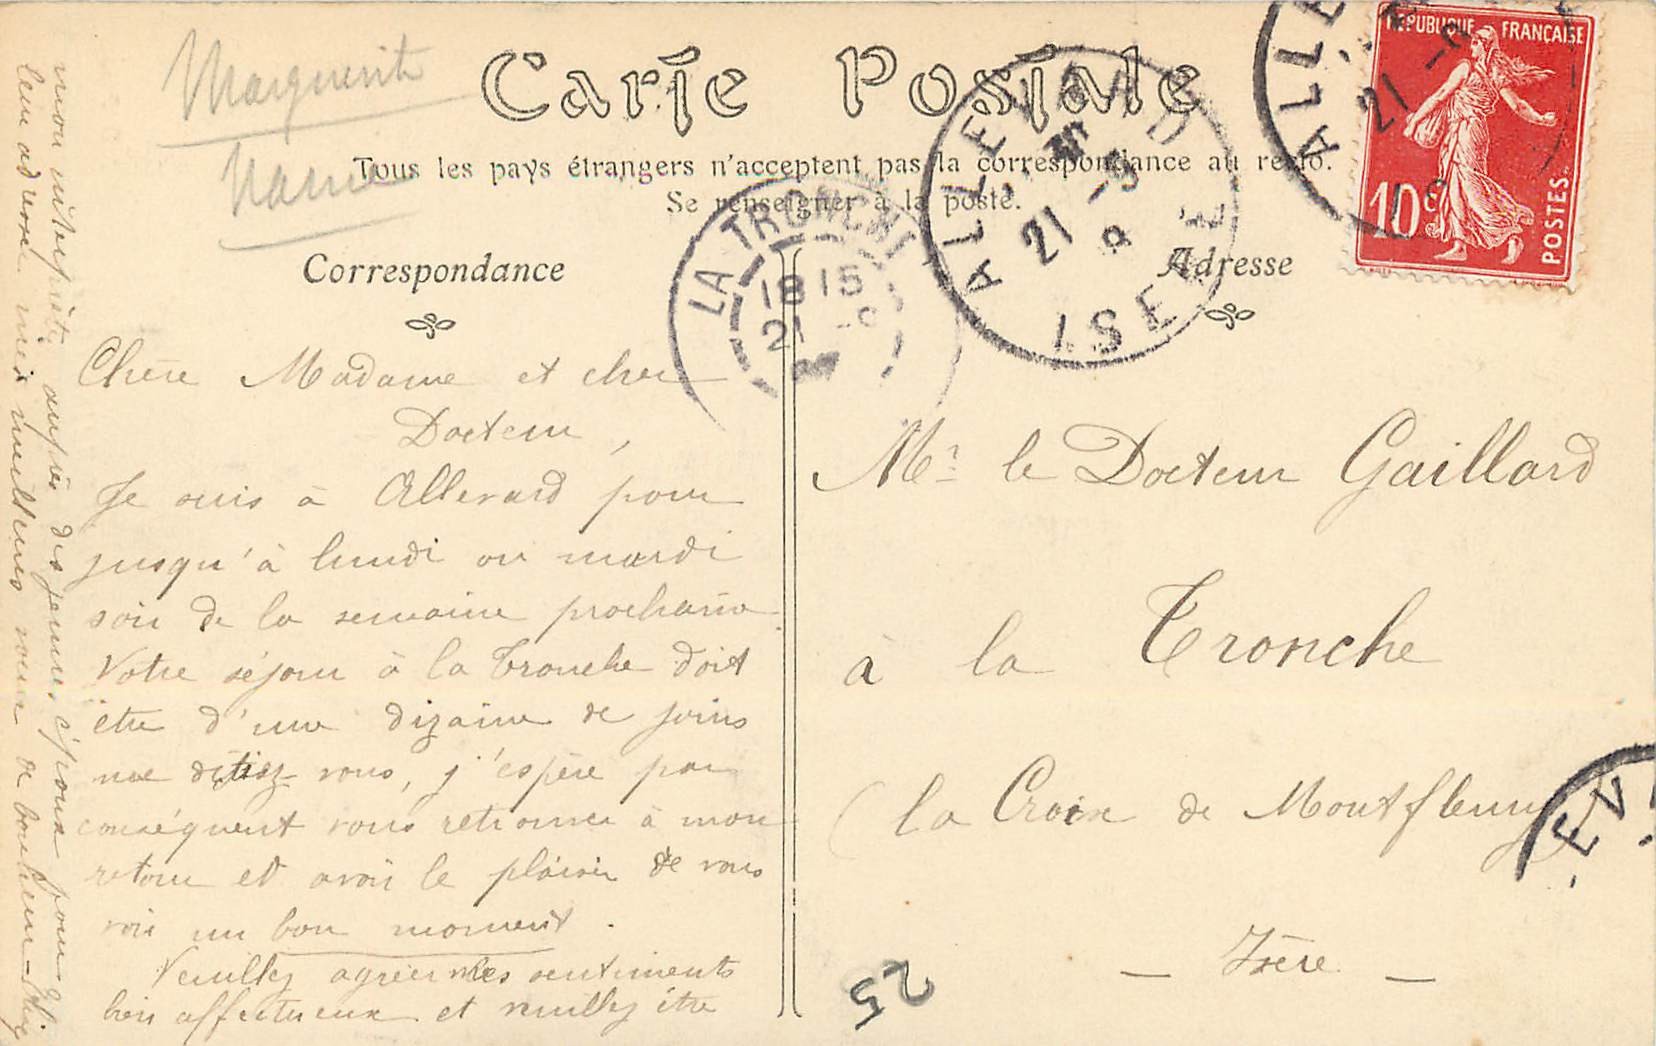 Marguerite
Carte Postale
Tous les pays étrangers n'acceptent pas la correspondance au recto.
Se renseigner à la poste.
Correspondance
Chère Madame et cher
Docteur,
Je suis à Allevard pour
jusqu'à lundi ou mardi
soir de la semaine prochaine
Votre séjour à la Tronche doit
être d'une dizaine de jours
me disiez vous, j'espère par
conséquent vous retrouver à mon
retour et avoir le plaisir de vous
voir un bon moment.
Veuillez agréer mes sentiments
bien affectueux et veuillez être
mon interprète auprès des jeunes époux pour
leur adresser mes meilleurs vœux de bonheur -
Adresse
Mr. le Docteur Gaillard
à la Tronche
(la Croix de Montfleury)
- Isère -
25
LA TRONCHE
18 15
21 -9
ALLEVARD
21 -9
ISERE
ALLE
21 -9
IS
REPUBLIQUE FRANÇAISE
10c
POSTES
EV